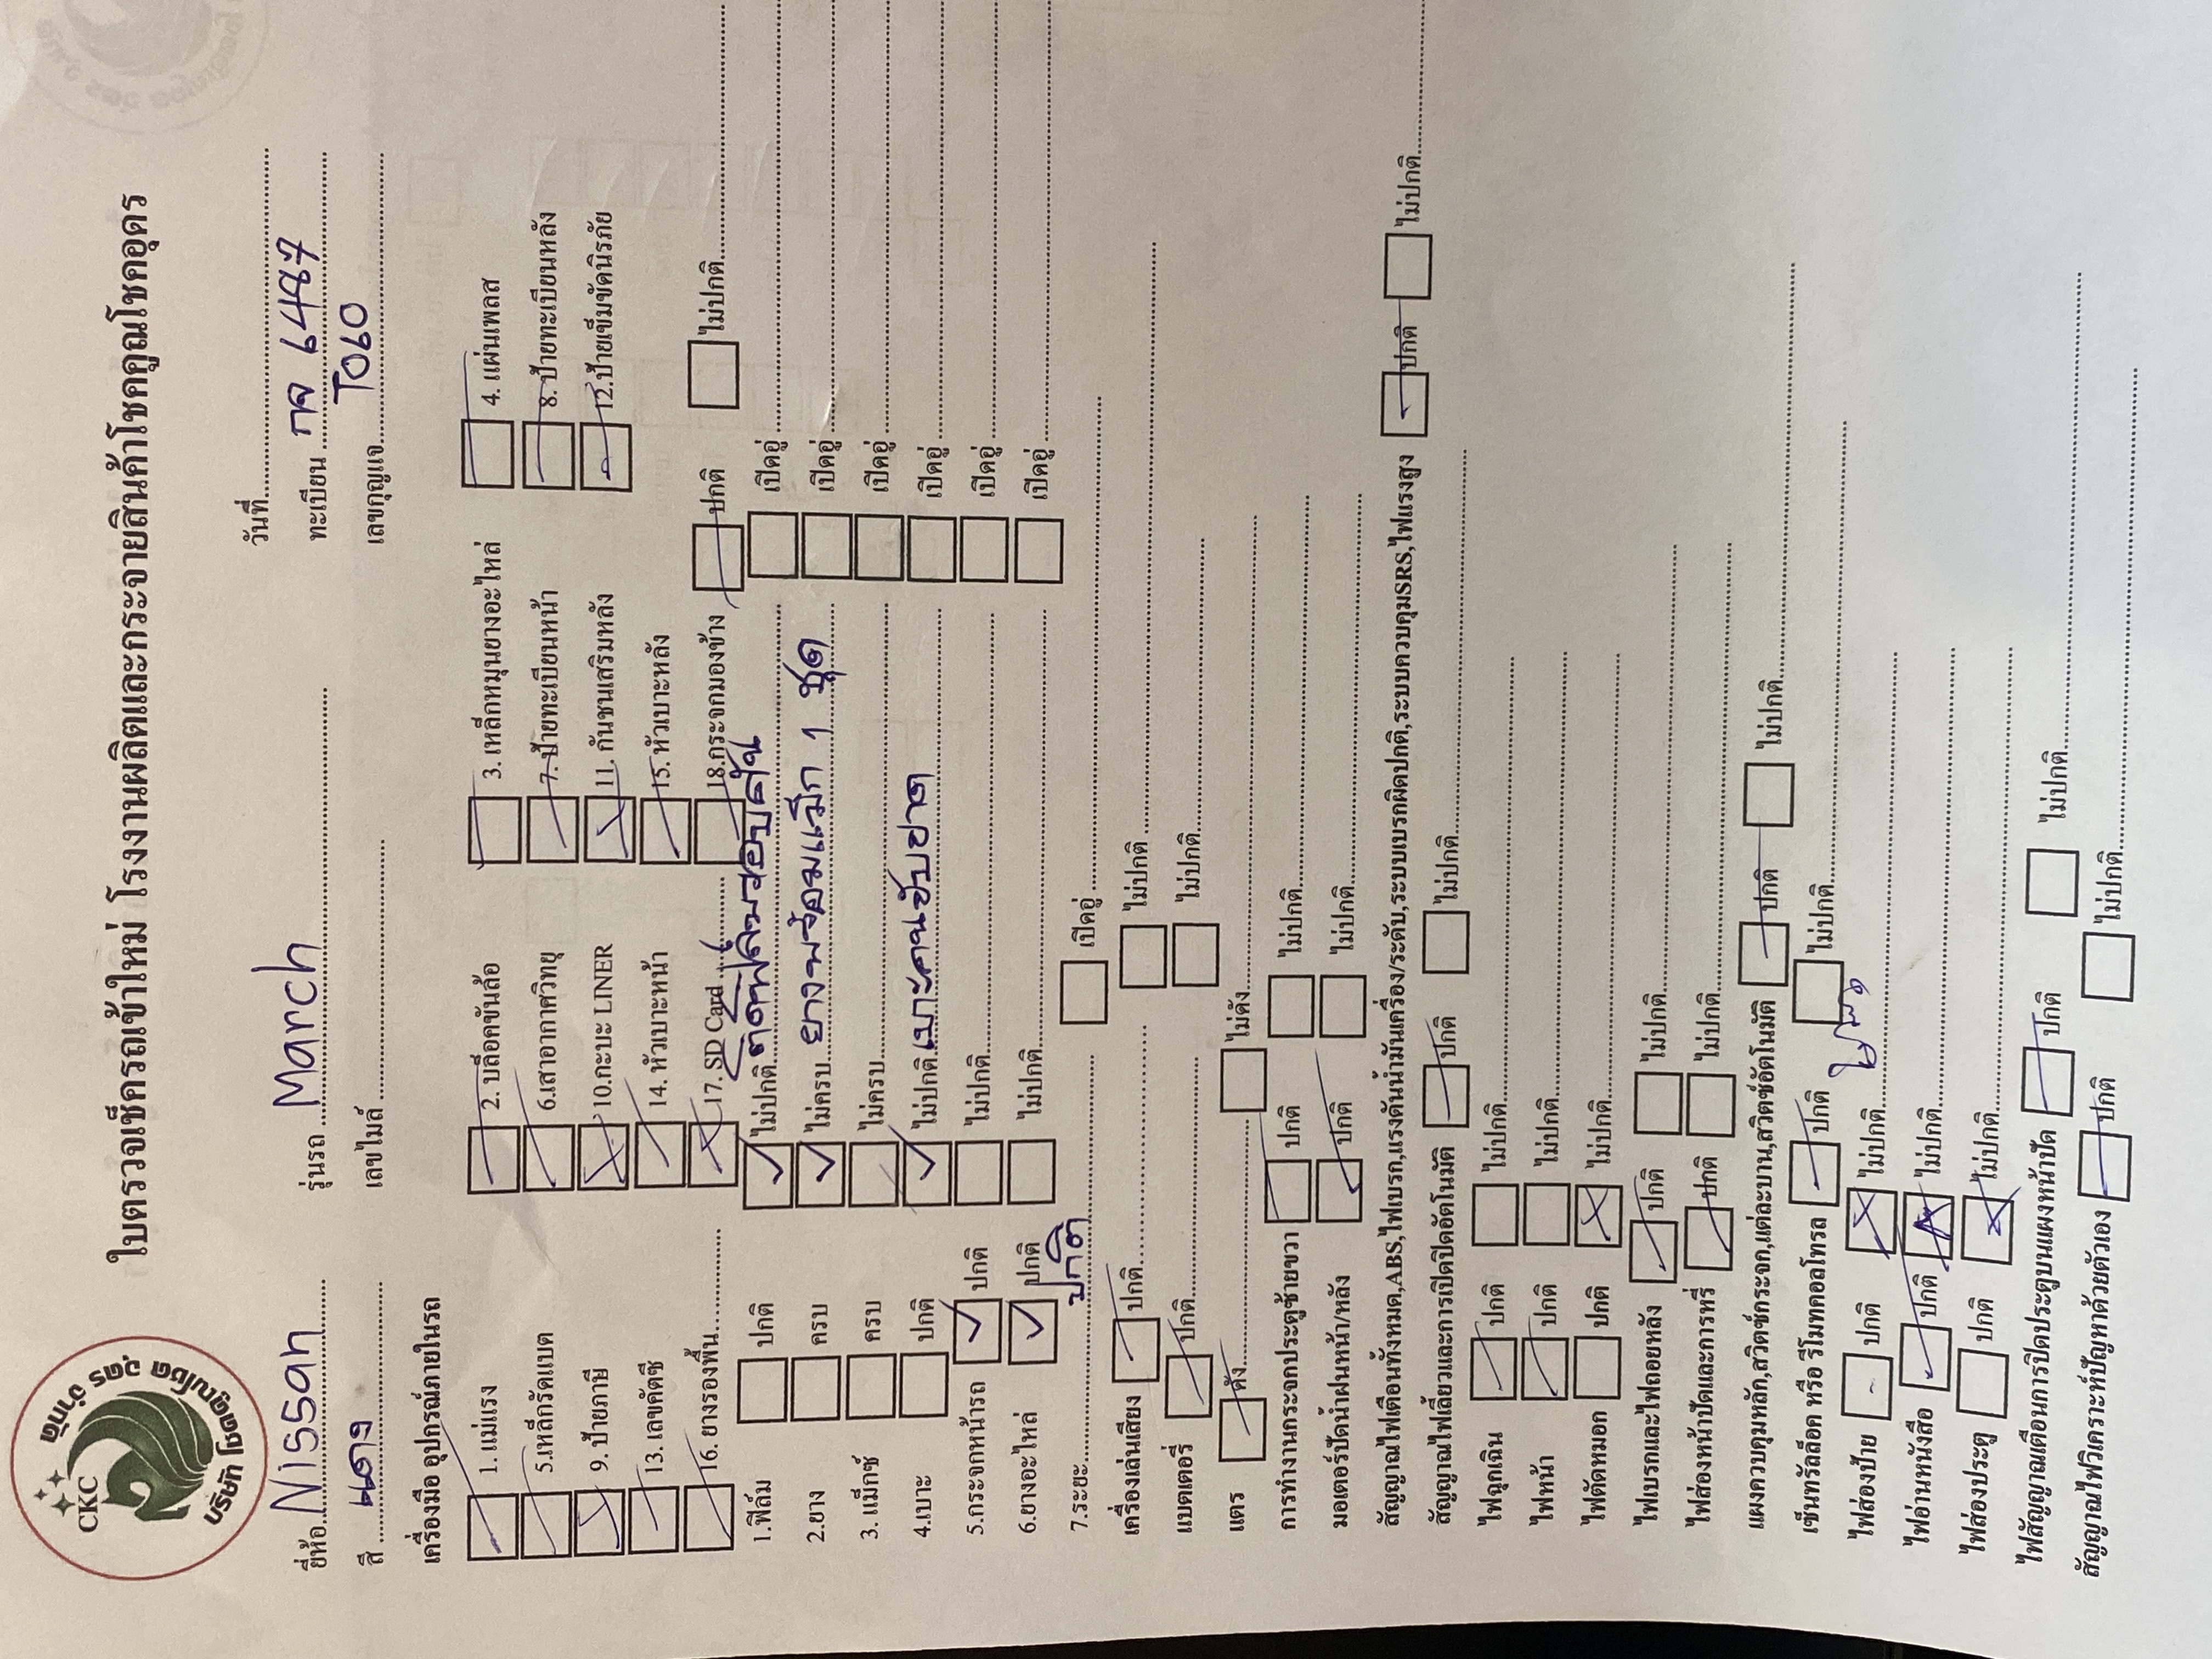 CKC
บริษัท โชคคูณโชค อุดร จำกัด
ใบตรวจเช็ครถเข้าใหม่ โรงงานผลิตและกระจายสินค้าโชคคูณโชคอุดร
วันที่
ยี่ห้อ Nissan รุ่นรถ March ทะเบียน กจ 6487
สี แดง เลขไมล์ เลขกุญแจ T060
เครื่องมือ อุปกรณ์ภายในรถ
1. แม่แรง 2. บล็อคขันล้อ 3. เหล็กหมุนยางอะไหล่ 4. แผ่นเพลส
5.เหล็กรัดแบต 6.เสาอากาศวิทยุ 7.ป้ายทะเบียนหน้า 8.ป้ายทะเบียนหลัง
9. ป้ายภาษี 10.กะบะ LINER 11. กันชนเสริมหลัง 12.ป้ายเข็มขัดนิรภัย
13. เลขคัตซี 14. หัวเบาะหน้า 15. หัวเบาะหลัง
16. ยางรองพื้น 17. SD Card 18.กระจกมองข้าง ปกติ ไม่ปกติ
1.ฟิล์ม ปกติ ไม่ปกติ เปิดอู่
2.ยาง ครบ ไม่ครบ ยางพร้อมแม็ก 1 ชุด เปิดอู่
3. แม็กซ์ ครบ ไม่ครบ เปิดอู่
4.เบาะ ปกติ ไม่ปกติ เบาะคนขับขาด เปิดอู่
5.กระจกหน้ารถ ปกติ ไม่ปกติ เปิดอู่
6.ยางอะไหล่ ปกติ ไม่ปกติ เปิดอู่
7.ระยะ ปกติ เปิดอู่
เครื่องเล่นเสียง ปกติ ไม่ปกติ
แบตเตอรี่ ปกติ ไม่ปกติ
แตร ดัง ไม่ดัง
การทำงานกระจกประตูซ้ายขวา ปกติ ไม่ปกติ
มอเตอร์ปัดน้ำฝนหน้า/หลัง ปกติ ไม่ปกติ
สัญญาณไฟเตือนทั้งหมด,ABS,ไฟเบรก,แรงดันน้ำมันเครื่อง/ระดับ,ระบบเบรกผิดปกติ,ระบบควบคุมSRS,ไฟแรงสูง ปกติ ไม่ปกติ
สัญญาณไฟเลี้ยวและการเปิดปิดอัตโนมัติ ปกติ ไม่ปกติ
ไฟฉุกเฉิน ปกติ ไม่ปกติ
ไฟหน้า ปกติ ไม่ปกติ
ไฟตัดหมอก ปกติ ไม่ปกติ
ไฟเบรกและไฟถอยหลัง ปกติ ไม่ปกติ
ไฟส่องหน้าปัดและการหรี่ ปกติ ไม่ปกติ
แผงควบคุมหลัก,สวิตช์กระจก,แต่ละบาน,สวิตช์อัตโนมัติ ปกติ ไม่ปกติ
เซ็นทรัลล็อค หรือ รีโมทคอลโทรล ปกติ ไม่ปกติ
ไฟส่องป้าย ปกติ ไม่ปกติ
ไฟอ่านหนังสือ ปกติ ไม่ปกติ
ไฟส่องประตู ปกติ ไม่ปกติ
ไฟสัญญาณเตือนการปิดประตูบนแผงหน้าปัด ปกติ ไม่ปกติ
สัญญาณไฟวิเคราะห์ปัญหาด้วยตัวเอง ปกติ ไม่ปกติ